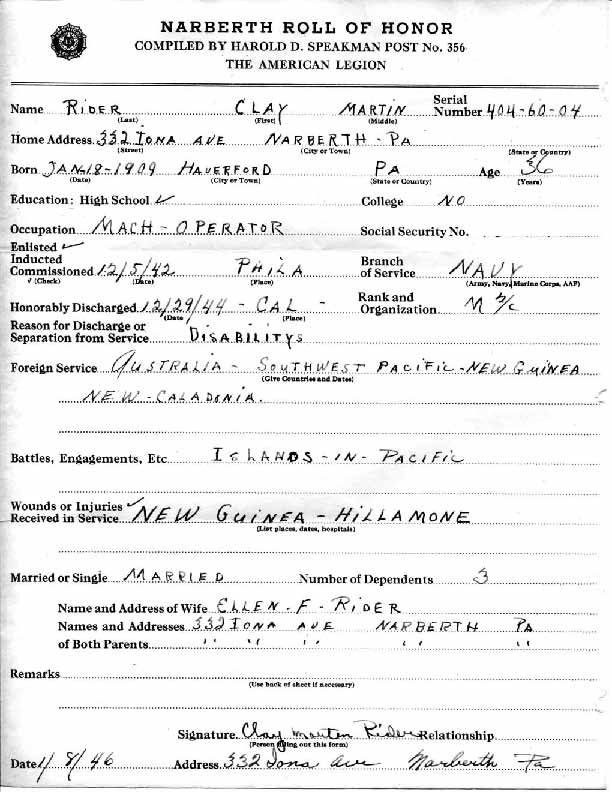 NARBERTH ROLL OF HONOR
COMPILED BY HAROLD D. SPEAKMAN POST No. 356
THE AMERICAN LEGION
Name RIDER CLAY MARTIN Serial Number 404-60-04
(Last) (First) (Middle)
Home Address 332 IONA AVE NARBERTH - PA
(Street) (City or Town) (State or Country)
Born JAN-18-1909 HAVERFORD PA Age 36
(Date) (City or Town) (State or Country) (Years)
Education: High School ✓ College NO
Occupation MACH - OPERATOR Social Security No.
Enlisted ✓
Inducted Branch
Commissioned 12/5/42 PHILA of Service NAVY
√ (Check) (Date) (Place) (Army, Navy, Marine Corps, AAF)
Honorably Discharged 12/29/44 - CAL - Rank and Organization M 3/C
(Date (Place)
Reason for Discharge or
Separation from Service DISABILITYS
Foreign Service AUSTRALIA - SOUTHWEST PACIFIC - NEW GUINEA
(Give Countries and Dates)
NEW-CALADONIA.
Battles, Engagements, Etc. ISLANDS-IN-PACIFIC
Wounds or Injuries ✓
Received in Service NEW GUINEA - HILLAMONE
(List places, dates, hospitals)
Married or Single MARRIED Number of Dependents 3
Name and Address of Wife ELLEN - F - RIDER
Names and Addresses 332 IONA AVE NARBERTH PA
of Both Parents " " " " "
Remarks
(Use back of sheet if necessary)
Signature Clay Martin Rider Relationship
(Person filling out this form)
Date 1/8/46 Address 332 Iona Ave Narberth Pa